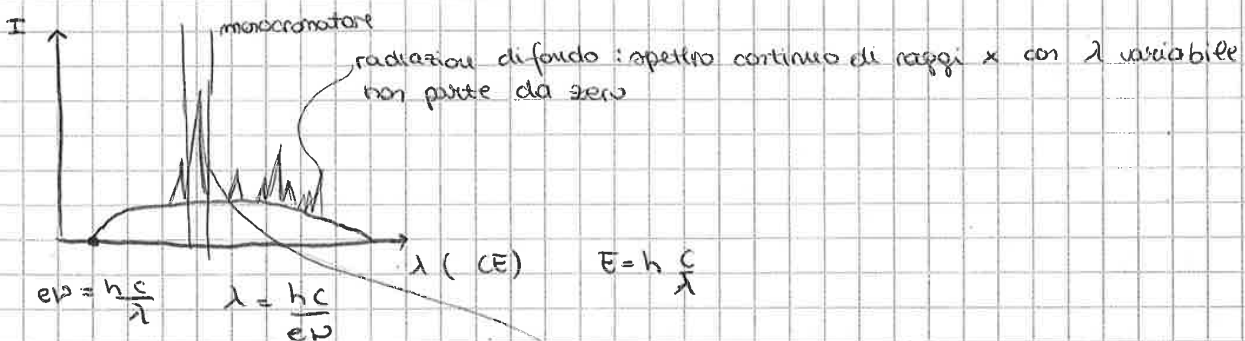 I
monocromatore
radiazion di fondo : spettro continuo di raggi x con λ variabile
non parte da zero
λ ( CE) E = h c/λ
eν = h c/λ λ = hc/eν